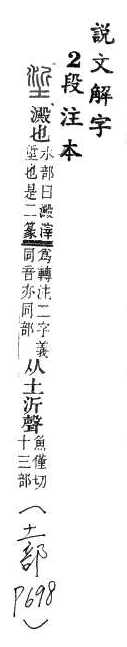 説文解字
2段注本
垽 澱也 水部曰澱滓垽也是二篆爲轉注二字義同音亦同部 从土沂聲 魚僅切十三部 (土部 P698)